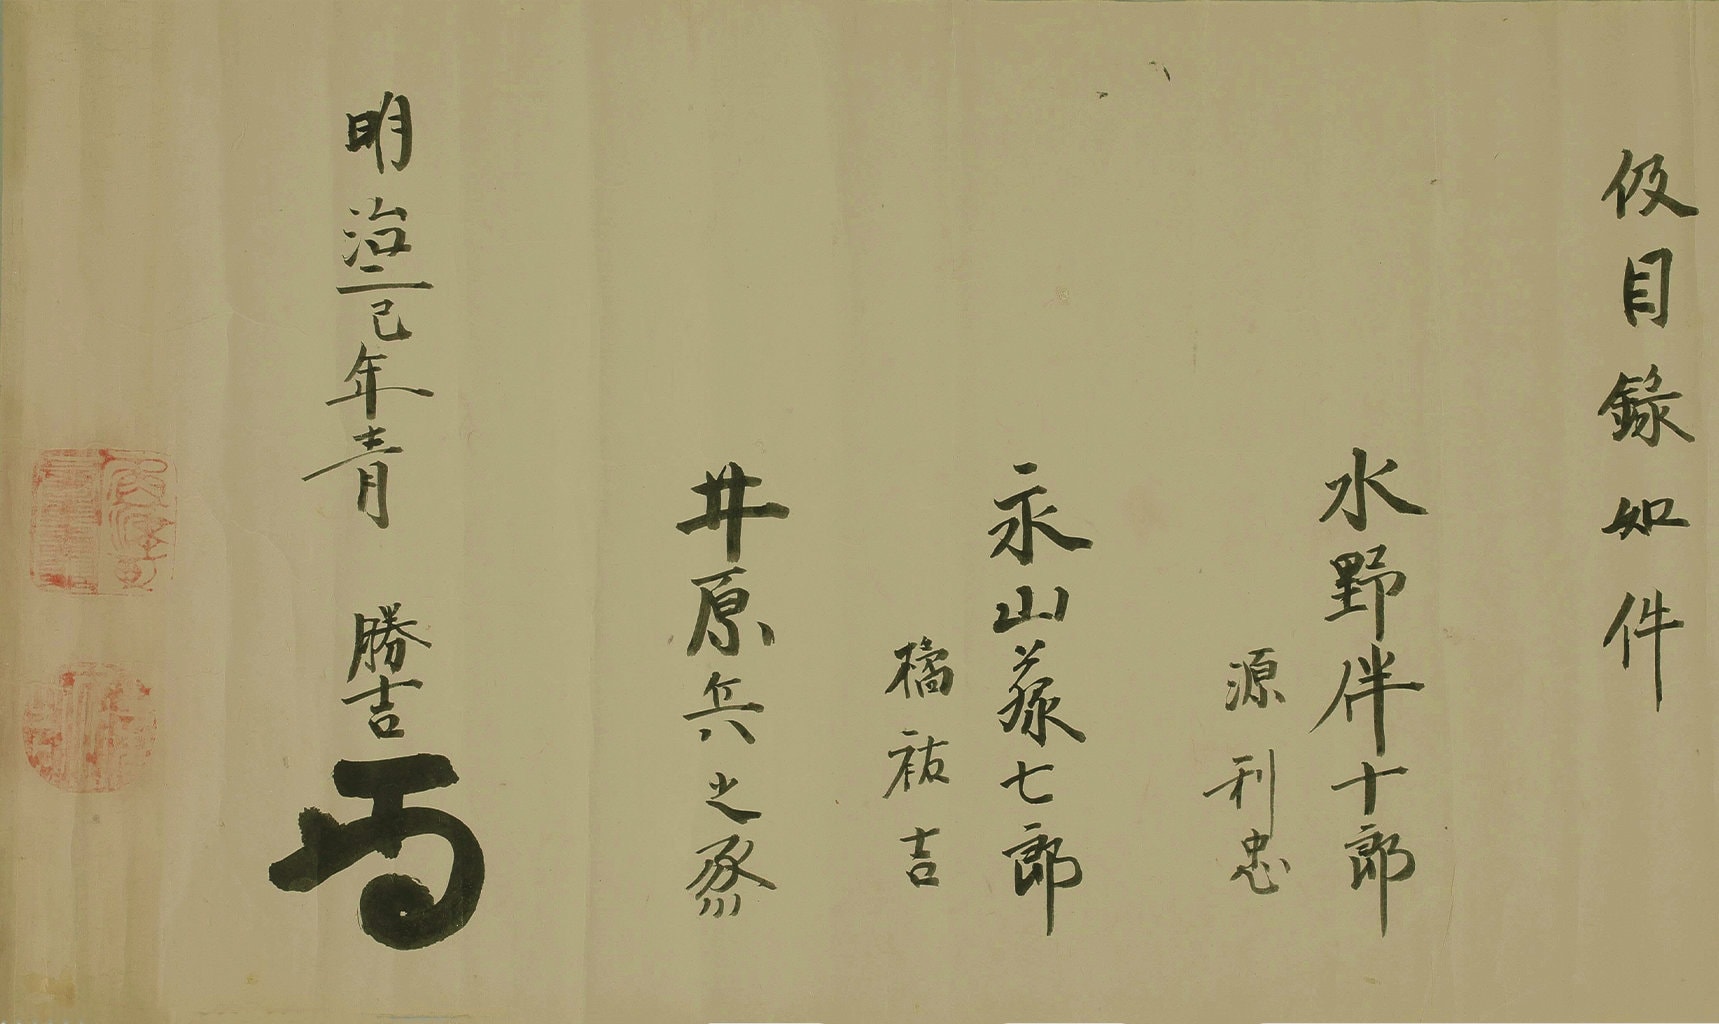 仮目録如件
水野伴十郎
源利忠
永山藤七郎
橘祐吉
井原兵之丞
明治二己年青
勝吉